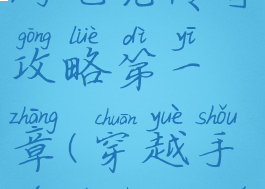 gōng lüè dì yī
攻略第一
zhāng chuān yuè shǒu
章(穿越手